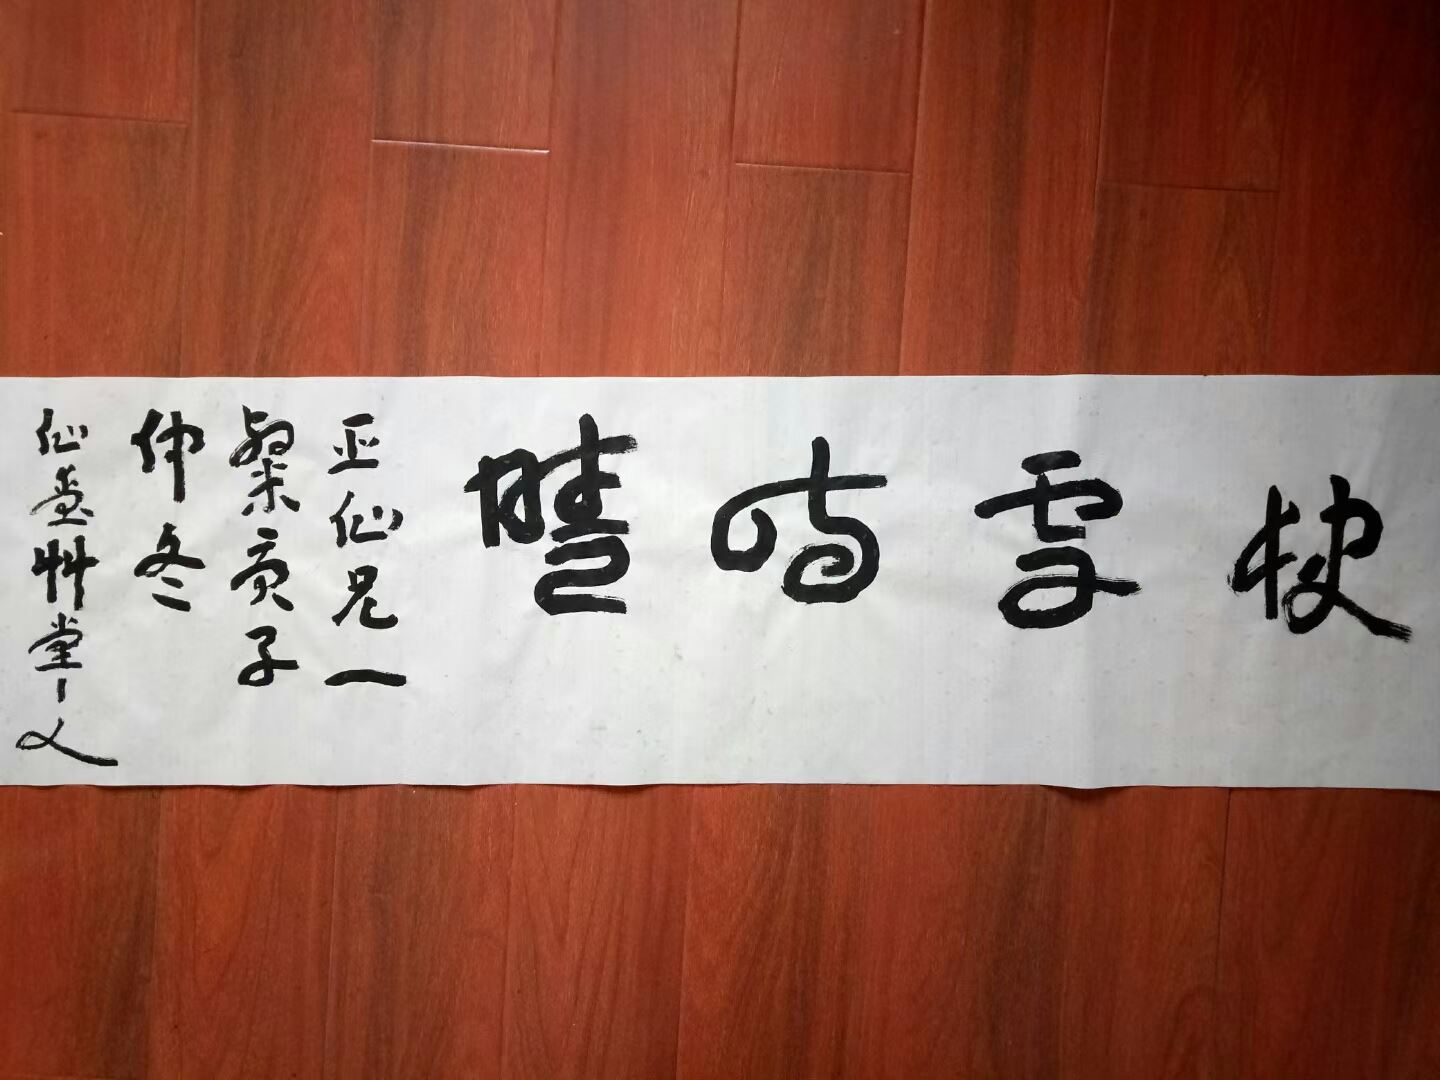 快雪时晴
仙兄一
粲庚子
仲冬
仙艸堂人